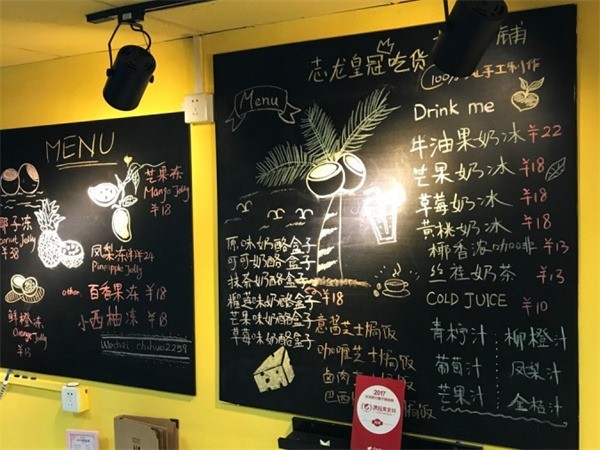 MENU
芒果冻
Mango Jelly
¥18
椰子冻
Coconut Jelly
¥38
凤梨冻
24
Pineapple Jelly
other:
百香果冻 ¥18
小西柚冻 ¥18
鲜橙冻
Orange Jelly
¥15
Wechat chihuo2259
志龙皇冠吃货
铺
100%
手工制作
Menu
Drink me
牛油果奶冰 ¥22
芒果奶冰 ¥18
草莓奶冰 ¥18
黄桃奶冰 ¥18
椰香浓咖啡 ¥13
丝袜奶茶 ¥13
COLD JUICE ¥10
青柠汁 柳橙汁
葡萄汁 凤梨汁
芒果汁 金桔汁
原味奶酪盒子
可可奶酪盒子
抹茶奶酪盒子
榴莲味奶酪盒子 ¥18
芒果味奶酪盒子
草莓味奶酪盒子
意酱芝士焗饭
咖喱芝士焗饭
卤肉
巴西
焗饭
2017